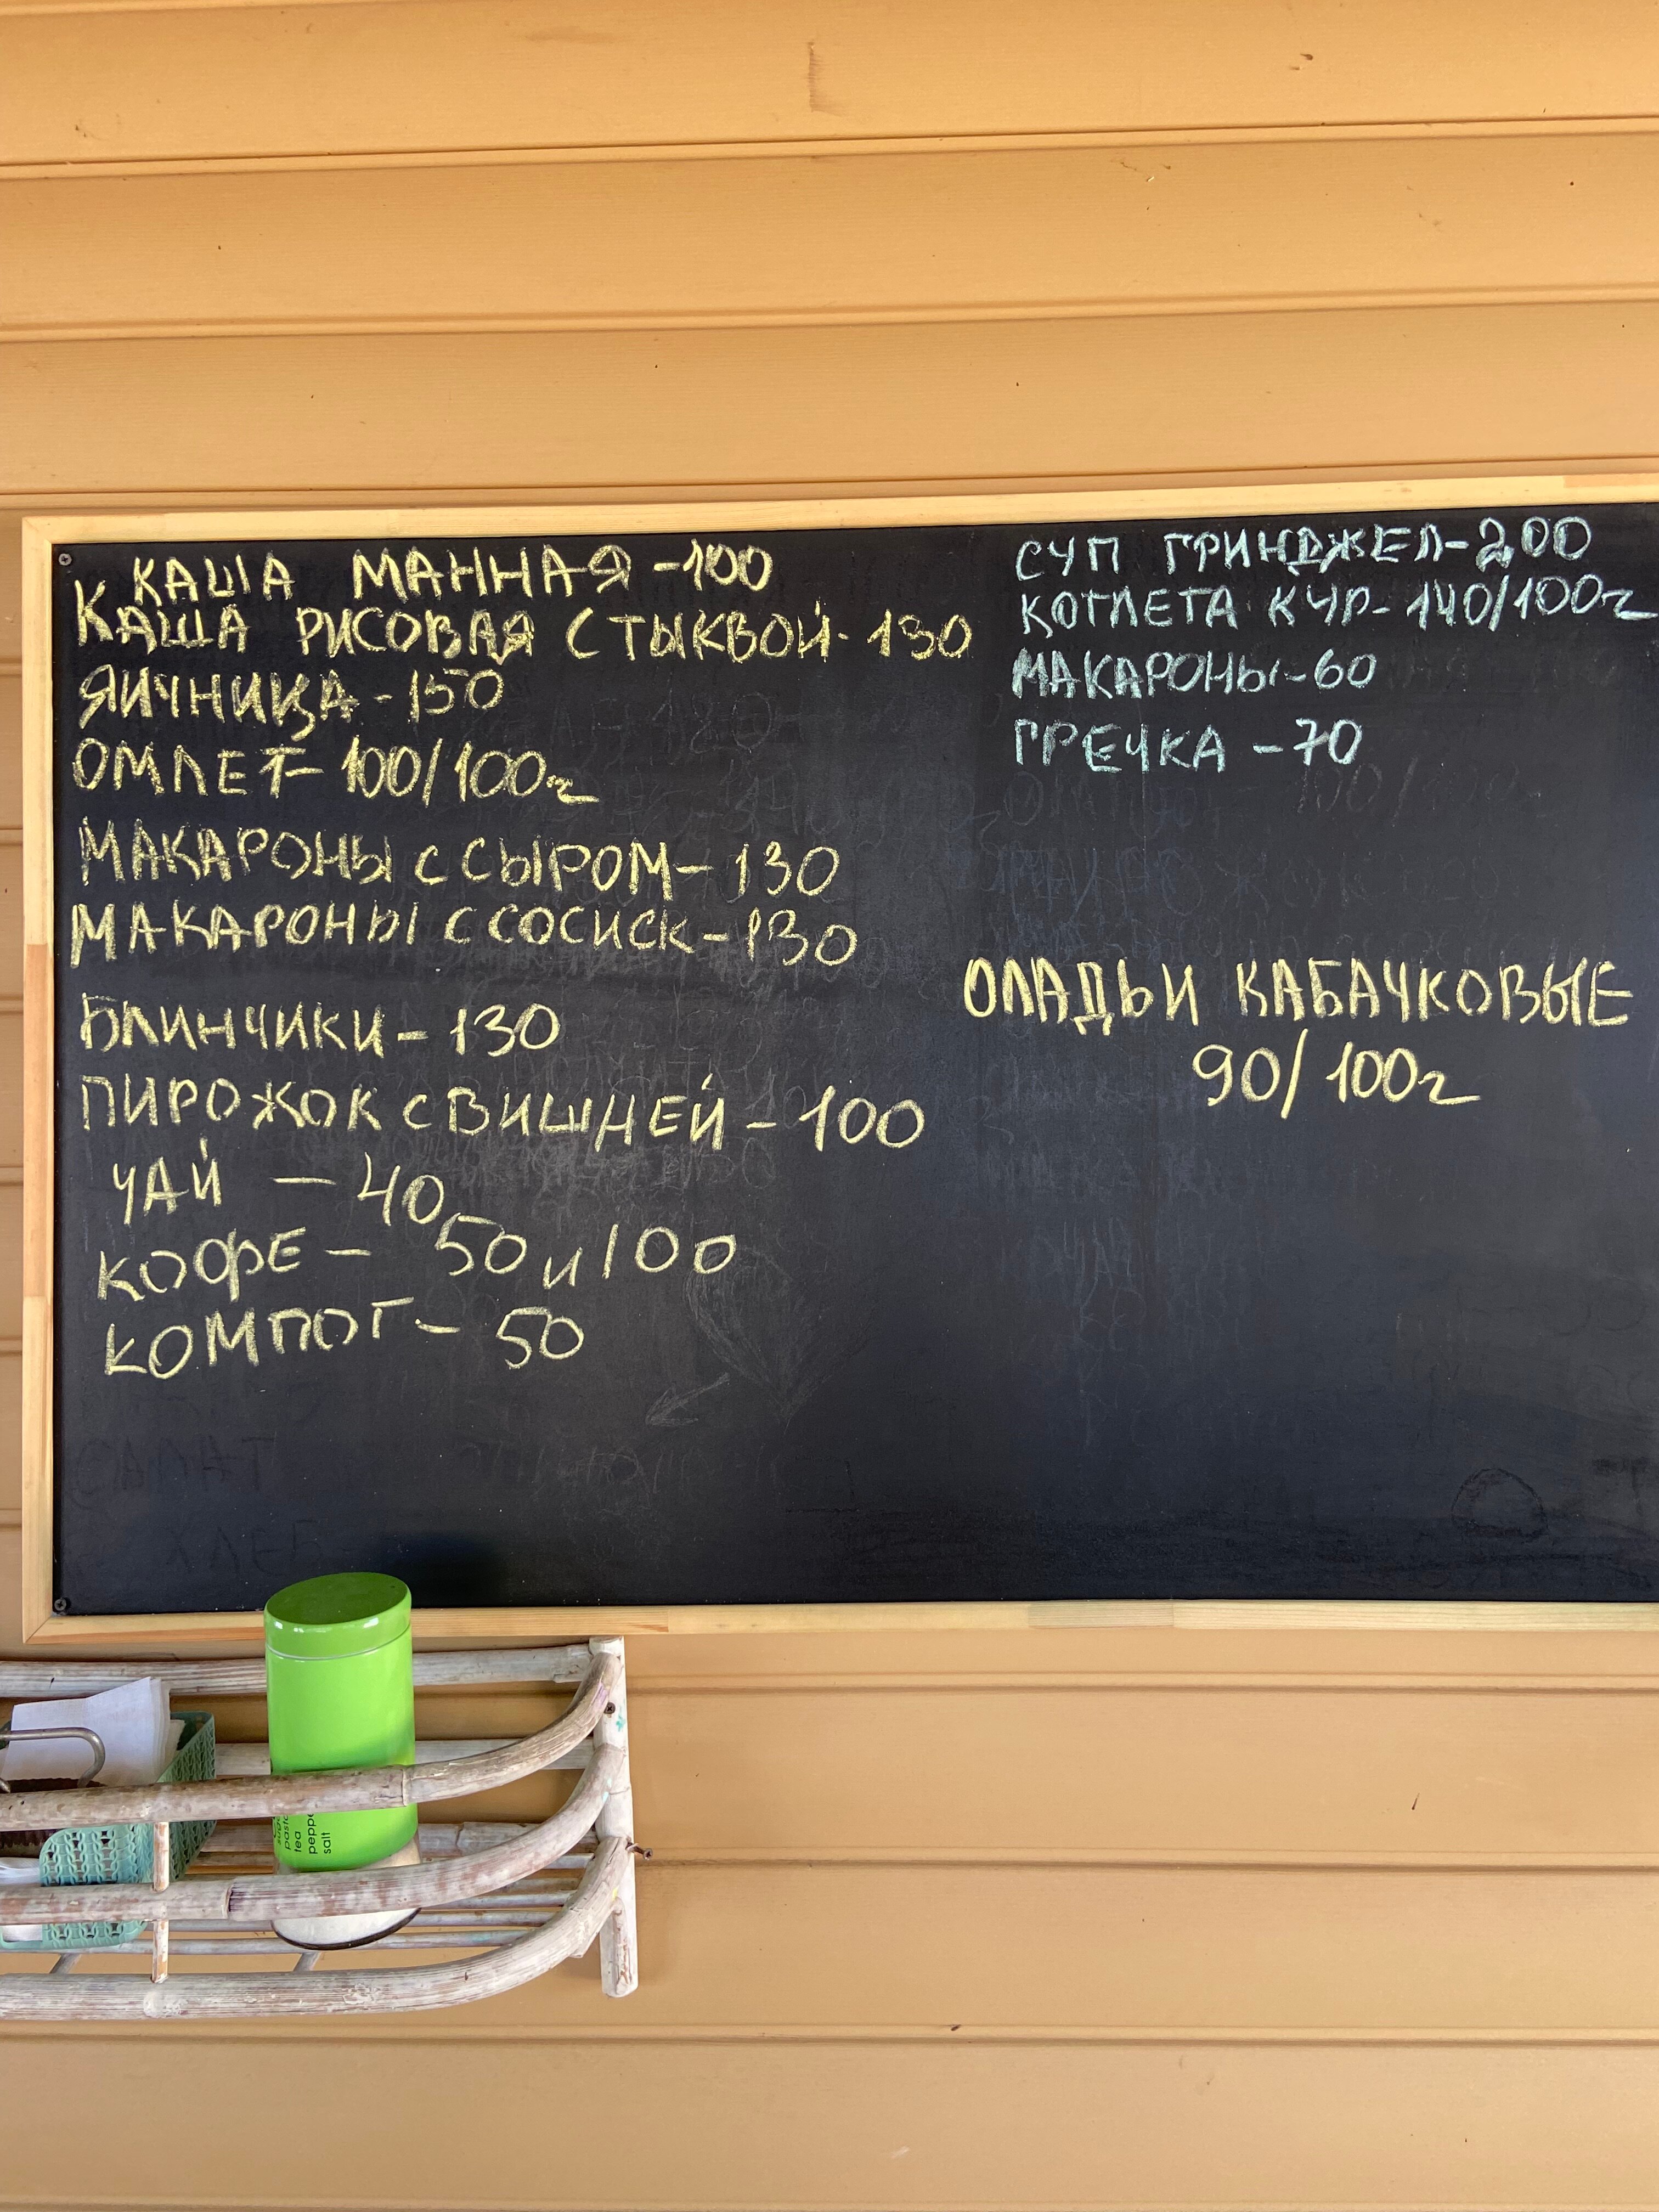 КАША МАННАЯ -100
КАША РИСОВАЯ С ТЫКВОЙ- 130
ЯИЧНИЦА - 150
ОМЛЕТ- 100/100г
МАКАРОНЫ С СЫРОМ- 130
МАКАРОНЫ С СОСИСК - 130
БЛИНЧИКИ - 130
ПИРОЖОК С ВИШНЕЙ - 100
ЧАЙ - 40
КОФЕ - 50 и 100
КОМПОТ - 50
СУП ГРИНДЖЕЛ-200
КОТЛЕТА КУР- 140/100г
МАКАРОНЫ-60
ГРЕЧКА -70
ОЛАДЬИ КАБАЧКОВЫЕ
90/100г
ХЛЕБ-
pasta
tea
pepp
salt